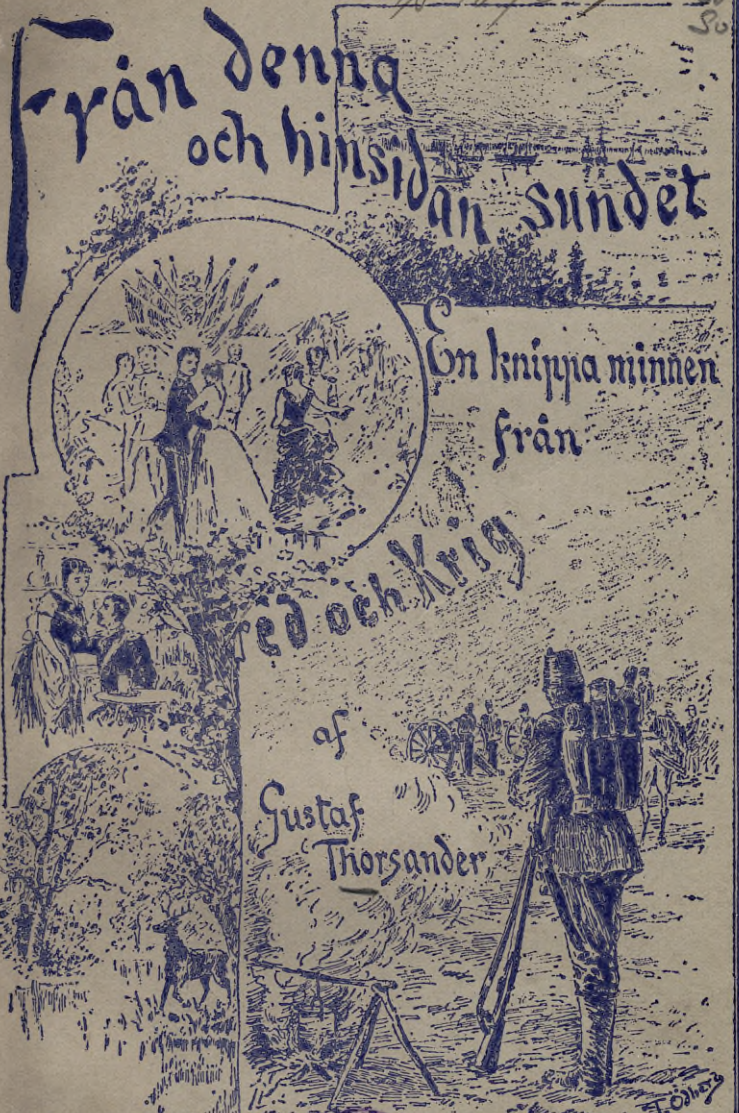 Från denna
och hinsidan sundet
En knippa minnen
från
Fred och Krig
af
Gustaf
Thorsander
Ödberg